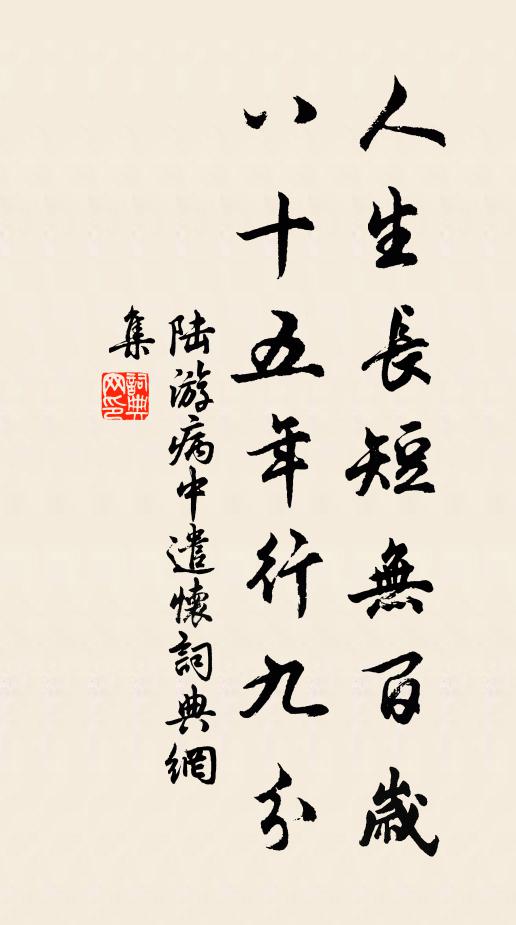 人生長短無百歲
八十五年行九分
陆游病中遣懷詞典網
集
詞典
网印